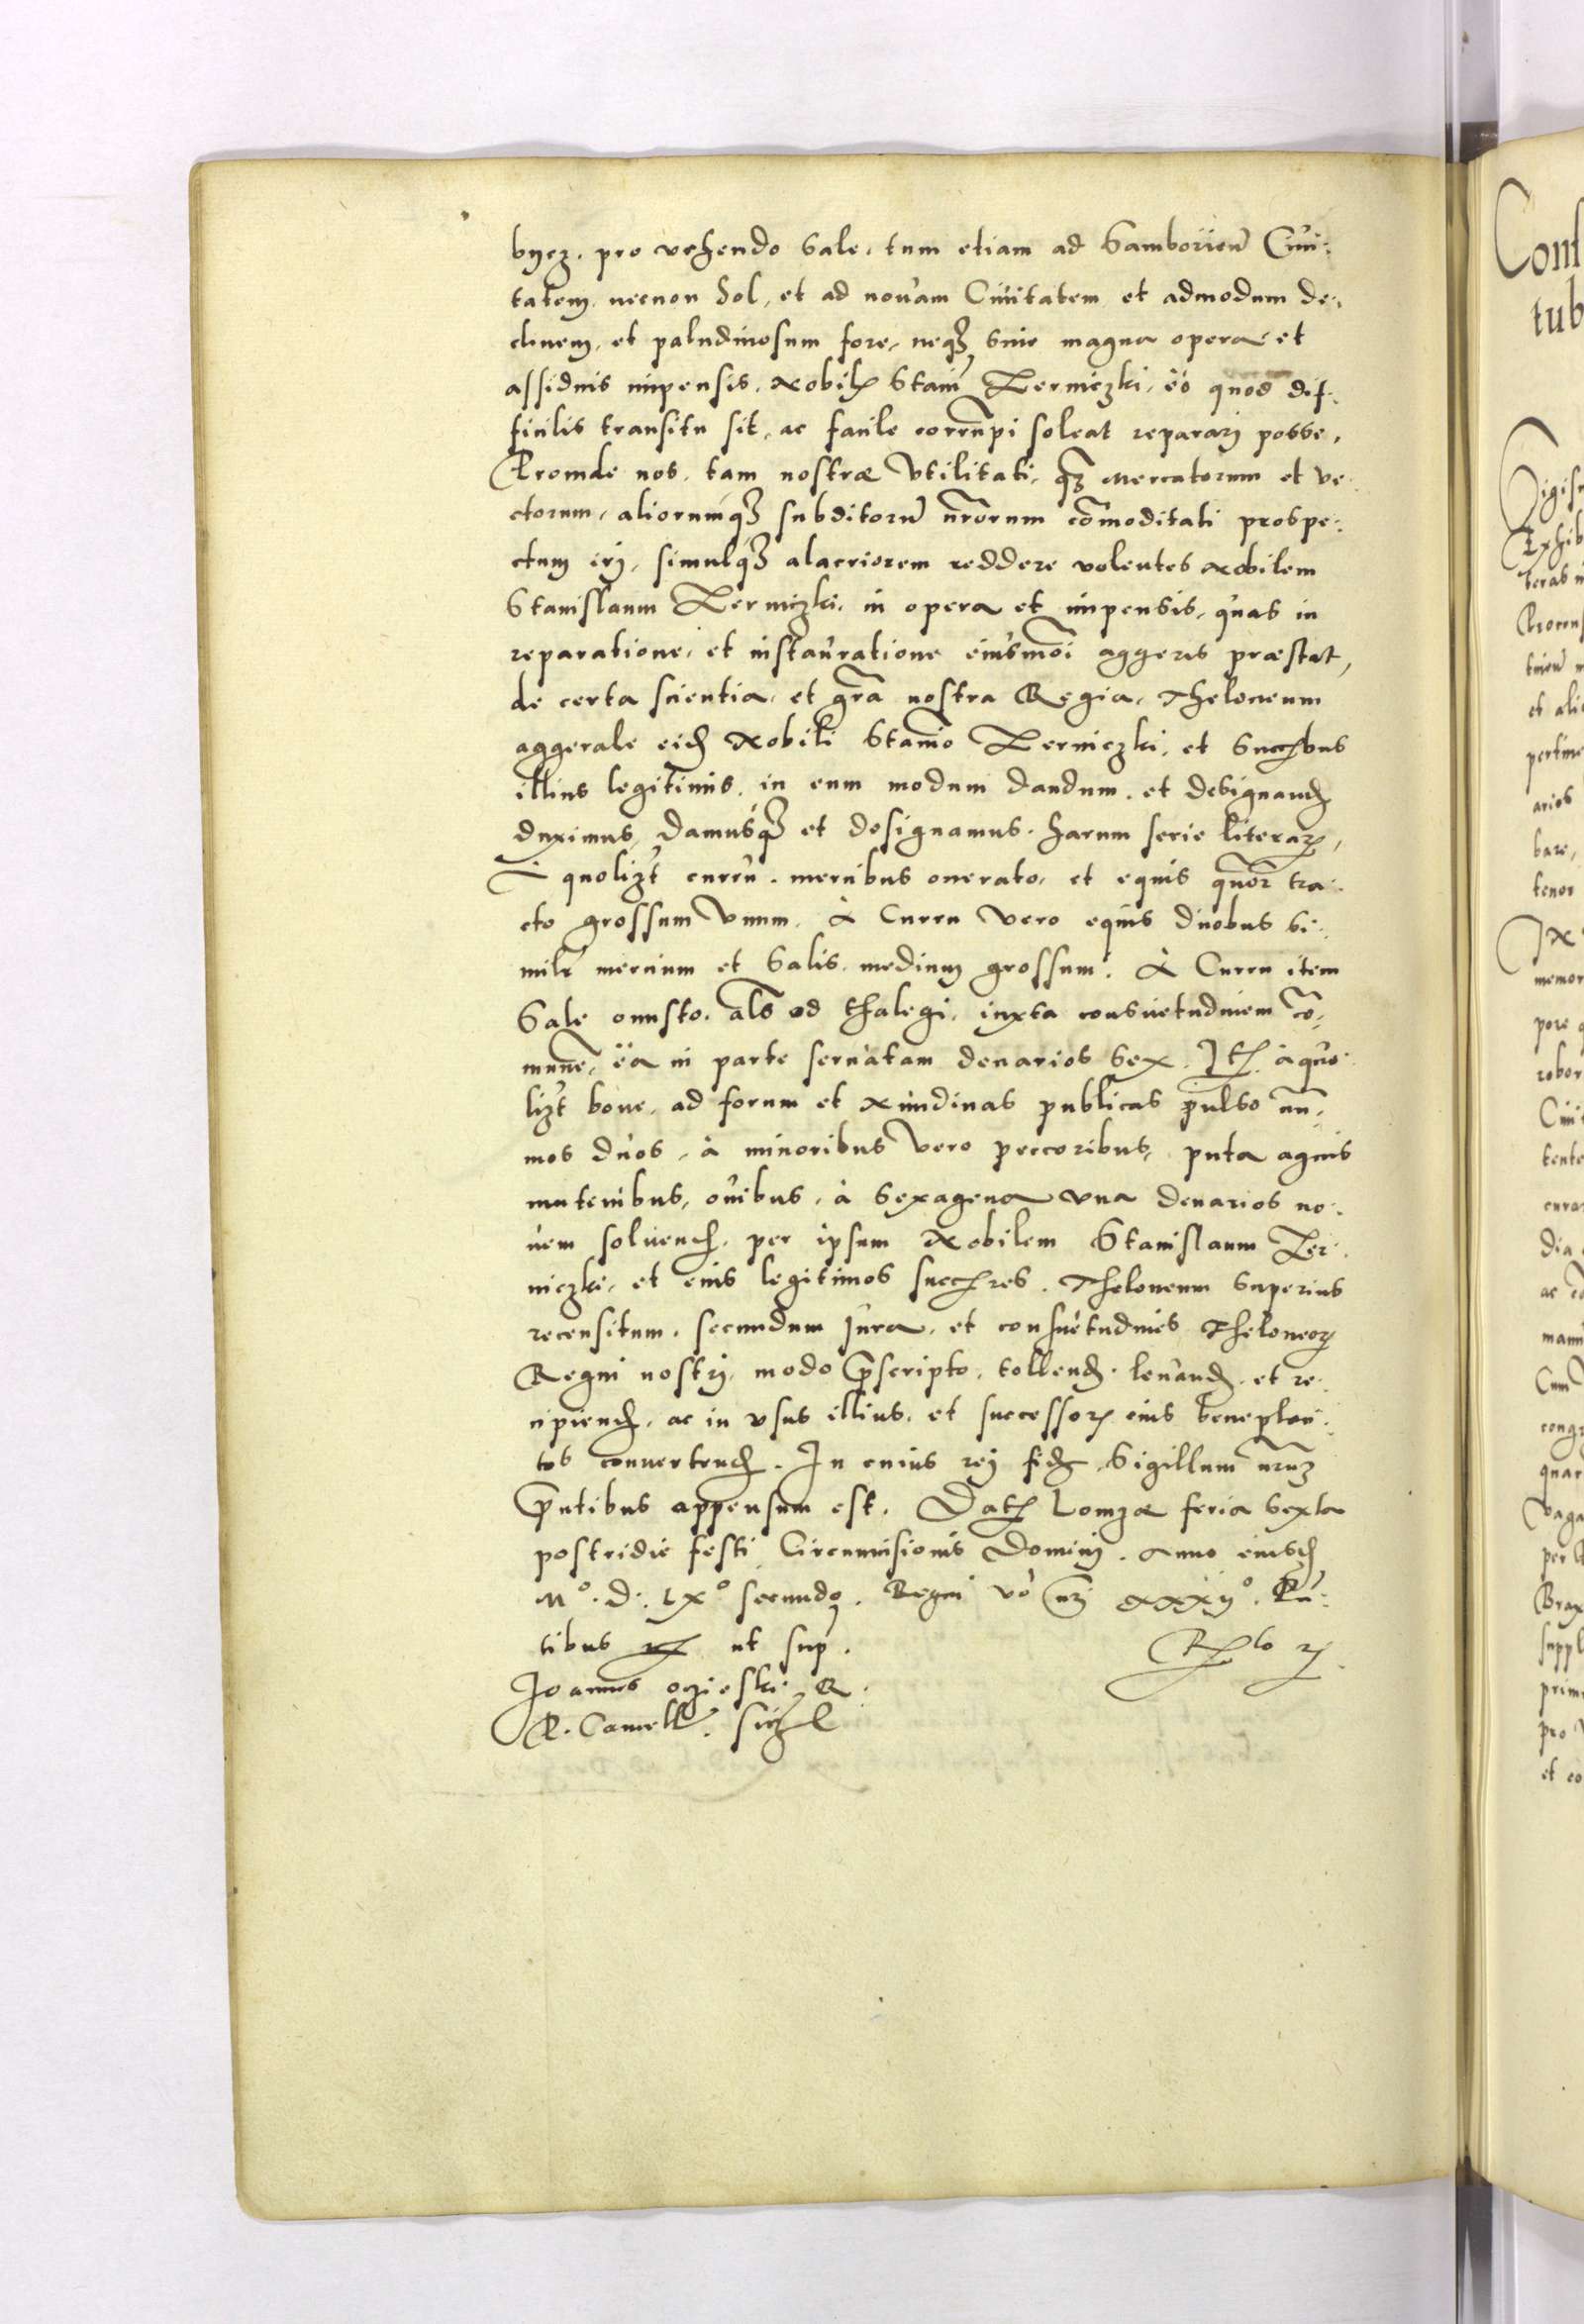 bycz. pro vehendo Sale, tum etiam ad Samborien̄ Ciui:
tatem. necnon Sol, et ad nouam Ciuitatem et admodum de:
cliuem, et paludinosum fore, neqʒ sine magna opera et
assiduis impensis. Nobilꝭ Stani Zerniczki, eò quod dif:
ficilis transitu sit, ac facile corrūpi soleat reparari posse,
Proinde nos. tam nostræ Vtilitati, qʒ Mercatorum et ve:
ctorum, aliorumqʒ subditorū nr̄orum cōmoditati prospe:
ctum iri, simulqʒ alacriorem reddere volentes Nobilem
Stanislaum Zerniczki, in opera et impensis, quas in
reparatione, et instauratione eiusmōi aggeris præstat,
de certa scientia, et gr̄a nostra Regia, Theloneum
aggerale eidꝫ Nobili Stanio Zerniczki, et Succꝭbus
illius legitimis, in eum modum dandum, et designandꝫ
duximus, Damusqʒ et designamus. harum serie literaꝝ,
A quolizt curru. mercibus onerato, et equis quor tra:
cto grossum Vnum. A Curru Vero equis duobus si:
milr mercium et Salis. medium grossum. A Curru item
Sale onusto. al̄s od thalegi, iuxta consuetudinem cō:
mune, ëa in parte seruatam denarios Sex. Itꝫ à quo:
lizt boue, ad forum et Nundinas publicas ꝓulso nu:
mos duos, à minoribus Vero peccoribus, puta agnis
mutenibus, ouibus, à Sexagena vna denarios no:
uem soluendꝫ. per ipsum Nobilem Stanislaum Zer:
niczki, et eius legitimos succꝭres. Theloneum Superius
recensitum. secundum Iura, et consuetudines Theloneoꝝ
Regni nostri, modo p̄scripto, tollendꝫ. leuandꝫ. et re:
cipiendꝫ, ac in vsus illius, et successoꝝ eius beneplaci:
tos conuertendꝫ. In cuius rei fidꝫ Sigillum nr̄um
p̄ntibus appensum est. Datꝫ Lomzæ feria Sexta
postridie festi Circumcisionis Domini. Anno eiusdꝫ
M°. D. LX° secundo. Regni vò nr̄i XXXij°. P̄n:
tibus ut sup.
Joannes oczieski. R.
R. Cancell.